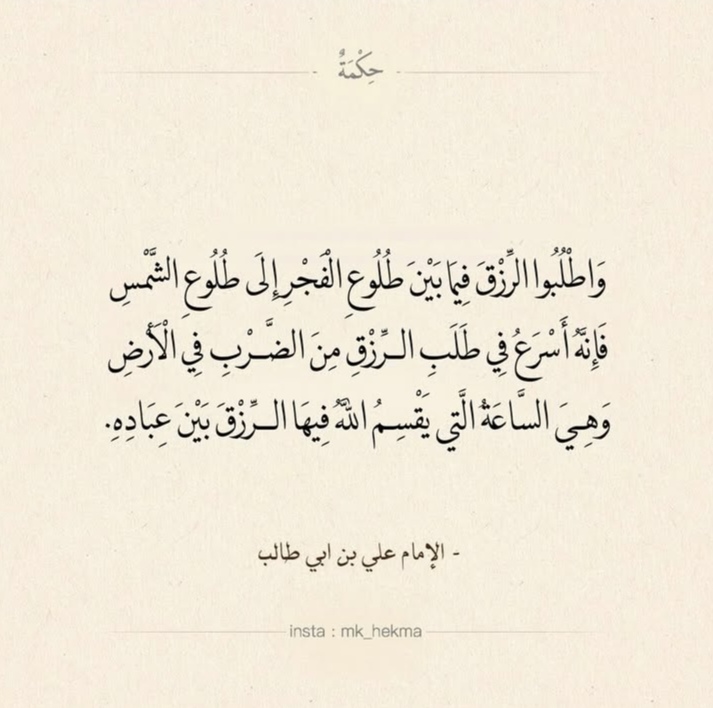 حِكْمَةٌ
وَاطْلُبُوا الرِّزْقَ فِيمَا بَيْنَ طُلُوعِ الْفَجْرِ إِلَى طُلُوعِ الشَّمْسِ
فَإِنَّهُ أَسْرَعُ فِي طَلَبِ الـرِّزْقِ مِنَ الضَّـرْبِ فِي الْأَرْضِ
وَهِـيَ السَّاعَةُ الَّتِي يَقْسِـمُ اللَّهُ فِيهَا الـرِّزْقَ بَيْنَ عِبَادِهِ.
- الإمام علي بن ابي طالب
insta : mk_hekma